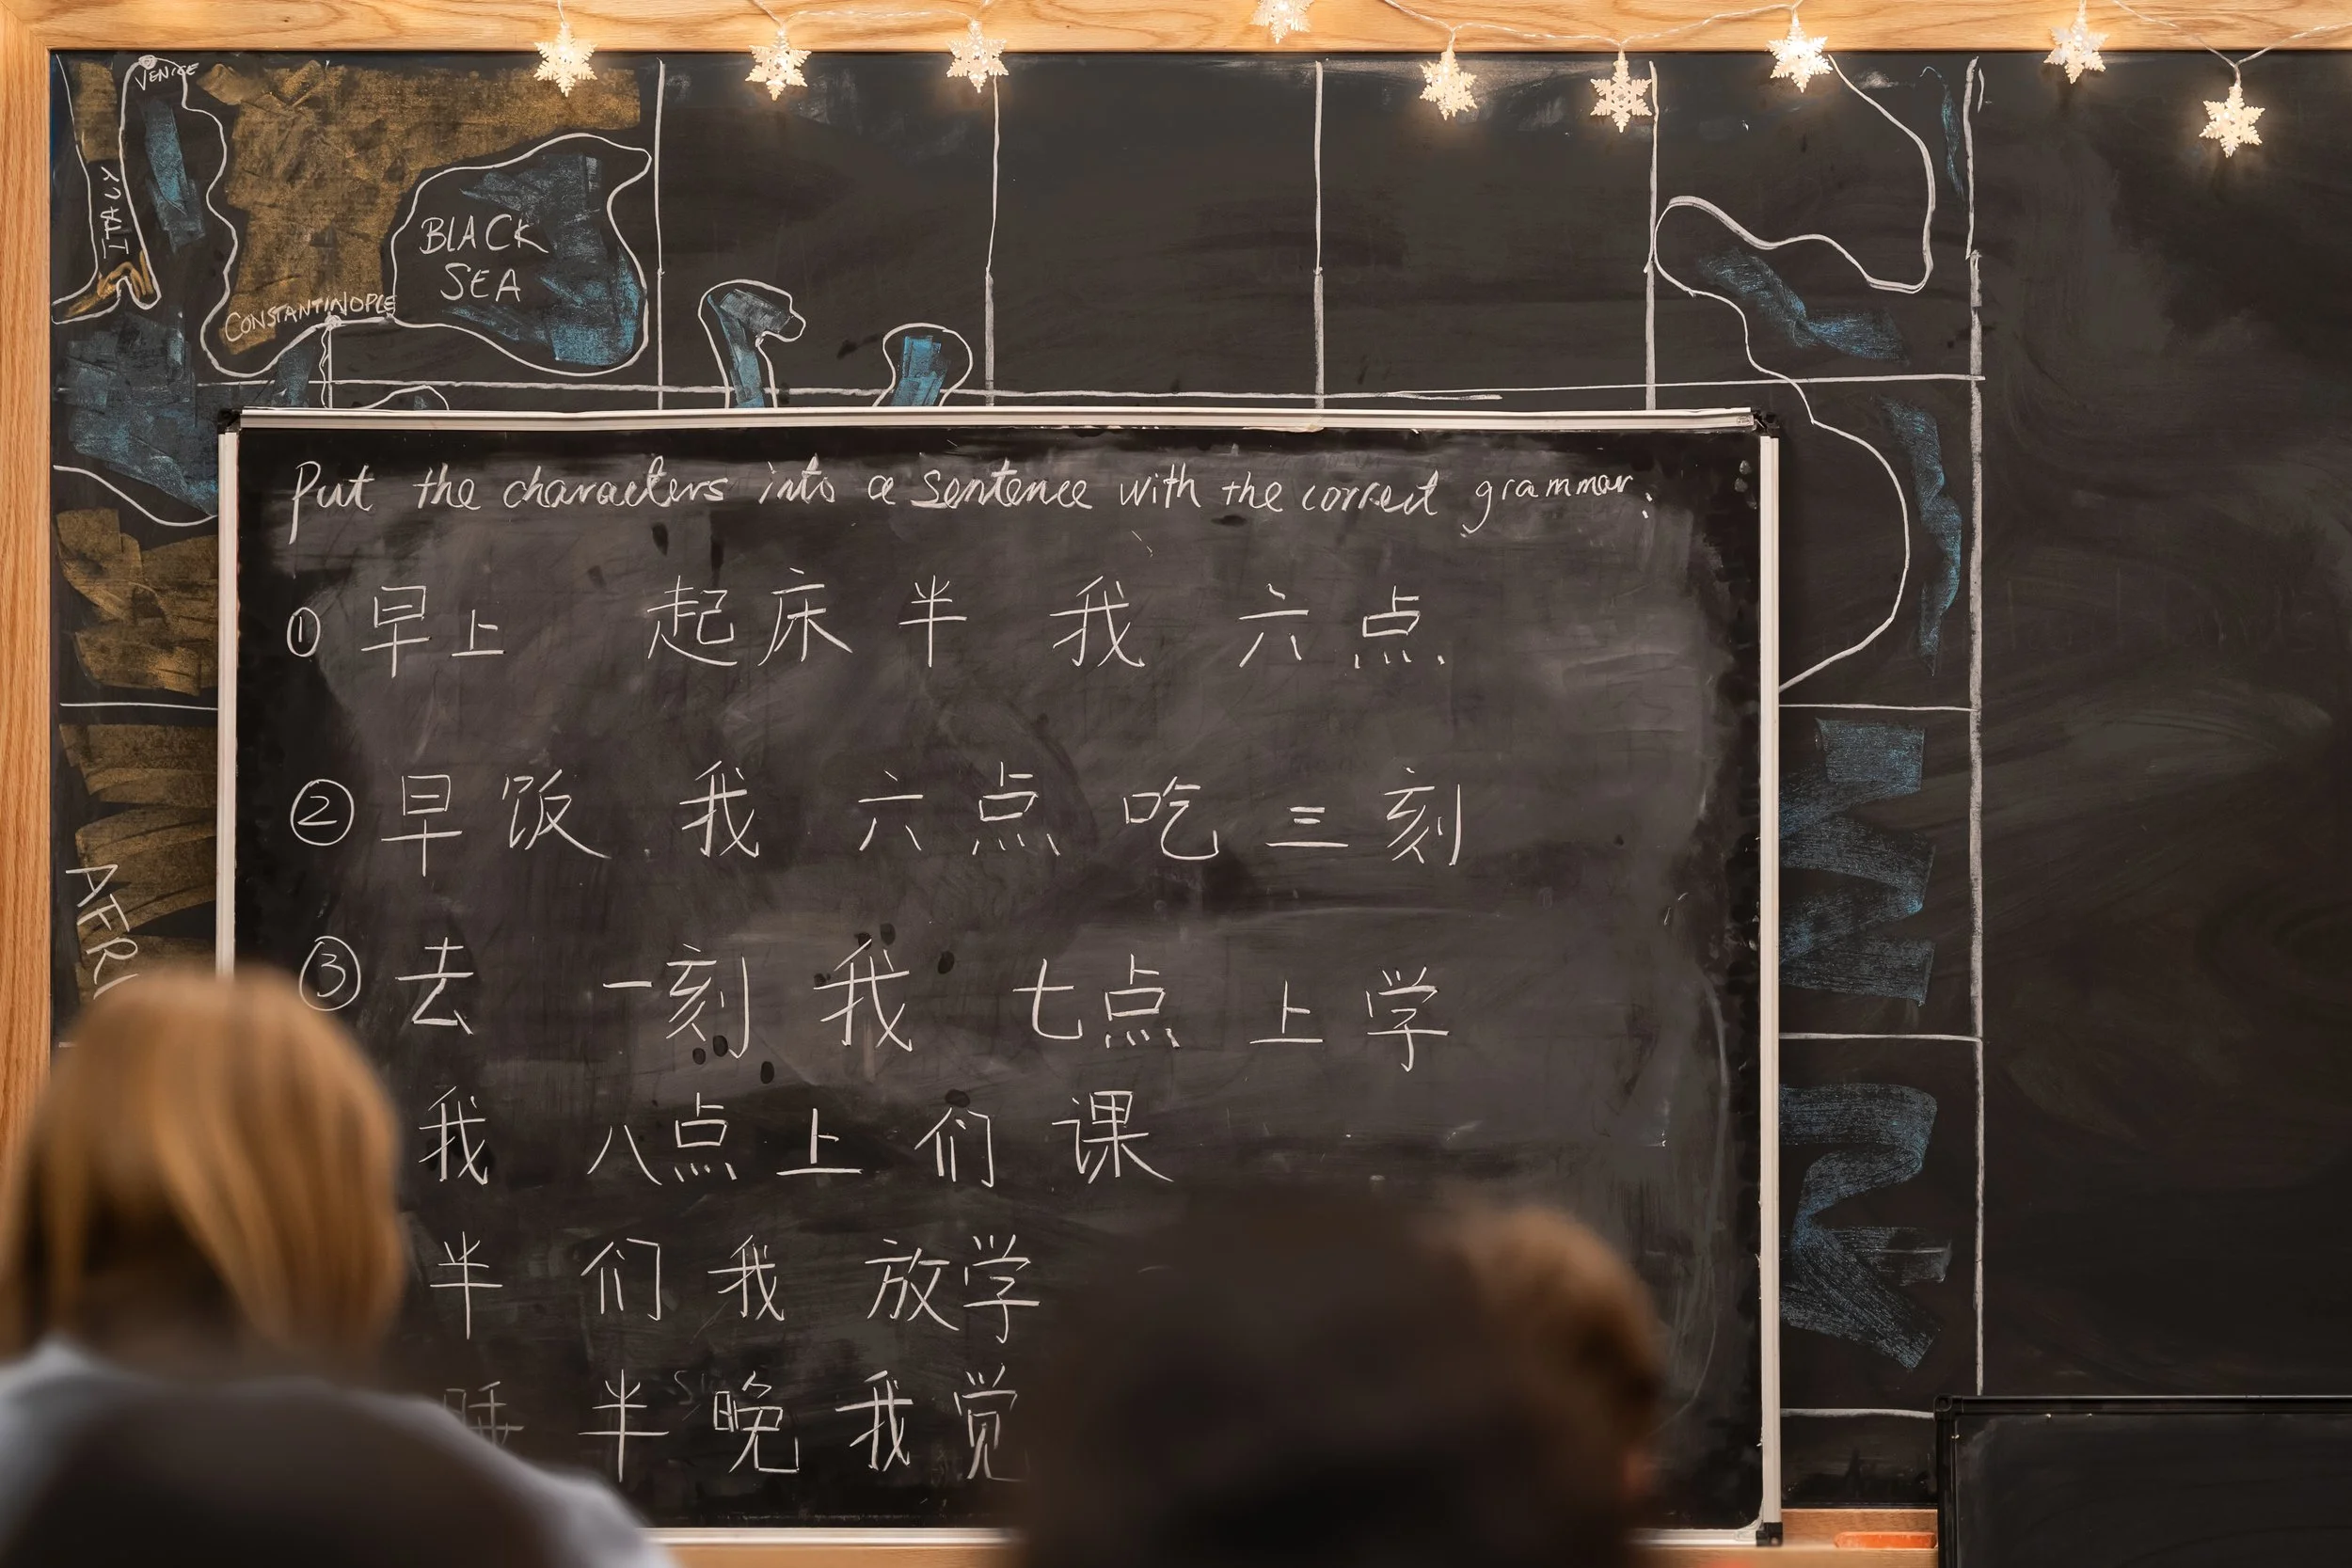 VENICE
ITALY
BLACK
SEA
CONSTANTINOPLE
Put the characters into a sentence with the correct grammar:
① 早上 起床 半 我 六点
② 早饭 我 六点 吃 三刻
③ 去 一刻 我 七点 上学
我 八点 上 们 课
半 们 我 放学
睡 半 晚 我 觉